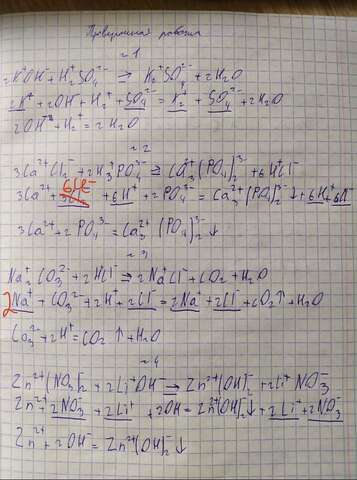 Проверочная работа
~1
2K⁺OH⁻ + H₂⁺SO₄²⁻ → K₂⁺SO₄²⁻ + 2H₂O
2K⁺ + 2OH⁻ + H₂⁺ + SO₄²⁻ = K₂⁺ + SO₄²⁻ + 2H₂O
2OH⁻ + H₂⁺ = 2H₂O
~2
3Ca²⁺Cl₂⁻ + 2H₃⁺PO₄³⁻ = Ca₃²⁺(PO₄)₂³⁻ + 6HCl⁻
6Cl⁻
3Ca²⁺ + 6H⁺ + 2PO₄³⁻ = Ca₃²⁺(PO₄)₂³⁻↓ + 6H⁺ + 6Cl⁻
3Ca²⁺ + 2PO₄³⁻ = Ca₃²⁺(PO₄)₂³⁻↓
~3
Na₂⁺CO₃²⁻ + 2H⁺Cl⁻ = 2Na⁺Cl⁻ + CO₂ + H₂O
2Na⁺ + CO₃²⁻ + 2H⁺ + 2Cl⁻ = 2Na⁺ + 2Cl⁻ + CO₂↑ + H₂O
CO₃²⁻ + 2H⁺ = CO₂↑ + H₂O
~4
Zn²⁺(NO₃)₂⁻ + 2Li⁺OH⁻ = Zn²⁺(OH)₂⁻ + 2Li⁺NO₃⁻
Zn²⁺ + 2NO₃⁻ + 2Li⁺ + 2OH⁻ = Zn²⁺(OH)₂⁻↓ + 2Li⁺ + 2NO₃⁻
Zn²⁺ + 2OH⁻ = Zn²⁺(OH)₂⁻↓